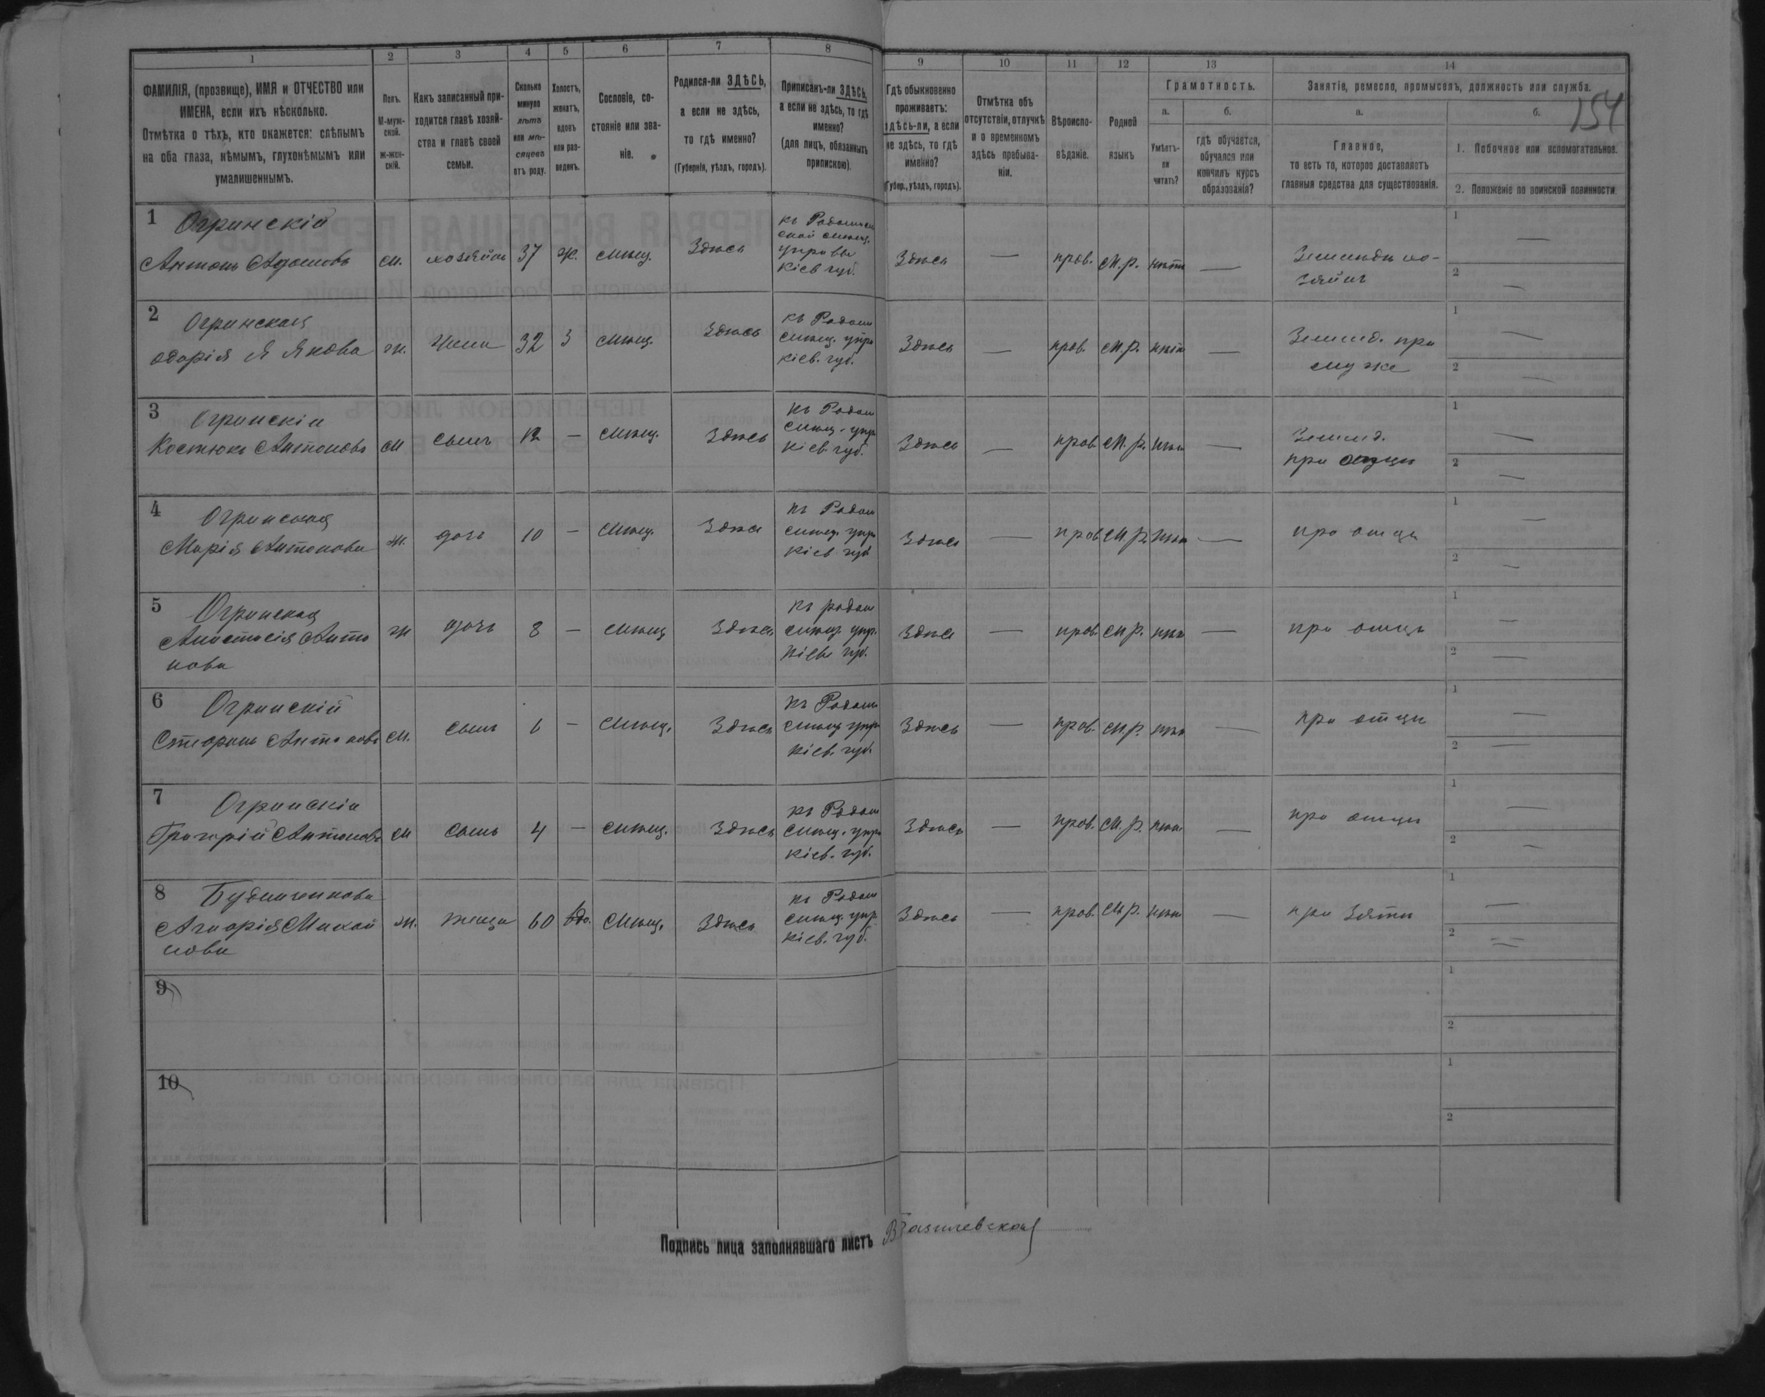 154
1 2 3 4 5 6 7 8 9 10 11 12 13 14
ФАМИЛІЯ, (прозвище), ИМЯ и ОТЧЕСТВО или
ИМЕНА, если ихъ нѣсколько.
Отмѣтка о тѣхъ, кто окажется: слѣпымъ
на оба глаза, нѣмымъ, глухонѣмымъ или
умалишеннымъ.
Полъ.
М-муж-
ской.
Ж-жен-
скій.
Какъ записанный при-
ходится главѣ хозяй-
ства и главѣ своей
семьи.
Сколько
минуло
лѣтъ
или мѣ-
сяцевъ
отъ роду.
Холостъ,
женатъ,
вдовъ
или раз-
веденъ.
Сословіе, со-
стояніе или зва-
ніе.
Родился-ли ЗДѢСЬ,
а если не здѣсь,
то гдѣ именно?
(Губернія, уѣздъ, городъ).
Приписанъ-ли ЗДѢСЬ,
а если не здѣсь, то гдѣ
именно?
(для лицъ, обязанныхъ
припискою).
Гдѣ обыкновенно
проживаетъ:
здѣсь-ли, а если
не здѣсь, то гдѣ
именно?
(Губер., уѣздъ, городъ).
Отмѣтка объ
отсутствіи, отлучкѣ
и о временномъ
здѣсь пребыва-
ніи.
Вѣроиспо-
вѣданіе.
Родной
языкъ
Грамотность.
а.
Умѣетъ-
ли
читать?
б.
гдѣ обучается,
обучался или
кончилъ курсъ
образованія?
Занятіе, ремесло, промыселъ, должность или служба.
а.
Главное,
то есть то, которое доставляетъ
главныя средства для существованія.
б.
1. Побочное или вспомогательное.
2. Положеніе по воинской повинности
1 Огринскій
Антонъ
м. хозяинъ 37 ж. мѣщ. Здѣсь
управы
Кіев. губ.
Здѣсь — прав. м.р. нѣтъ —
1 —
2 —
2 Огринская
Якова
ж. жена 32 З мѣщ. Здѣсь
къ Радом
мѣщ. упр
Кіев. губ.
Здѣсь — прав. м.р. нѣтъ —
1 —
2 —
3 Огринскій
Антоновъ
м сынъ 12 — мѣщ. Здѣсь
къ Радом
мѣщ. упр
Кіев. губ.
Здѣсь — прав. м.р. —
при отцѣ
1 —
2 —
4 Огринская
Марія Антонова
ж. дочь 10 — мѣщ. Здѣсь
къ Радом
мѣщ. упр
Кіев губ
Здѣсь — прав. м.р. —
при отцѣ
1 —
2 —
5 Огринская
Анастасія Анто
нова
ж дочь 8 — мѣщ Здѣсь
къ Радом
мѣщ. упр.
Кіев. губ.
Здѣсь — прав. м.р. —
при отцѣ
1 —
2 —
6 Огринскій
Антонов
м. сынъ 6 — мѣщ. Здѣсь
къ Радом
мѣщ упр
Кіев. губ.
Здѣсь — прав. м.р. —
при отцѣ
1 —
2 —
7 Огринскій
Григорій Антоновъ
м сынъ 4 — мѣщ. Здѣсь
къ Радом
мѣщ. упр
Кіев. губ.
Здѣсь — прав. м.р. —
при отцѣ
1 —
2 —
8
ж. теща 60 вдо. мѣщ. Здѣсь
къ Радом
мѣщ. упр
Кіев. губ.
Здѣсь — прав. м.р. —
при зяти
1 —
2 —
9
1
2
10
1
2
Подпись лица заполнявшаго листъ